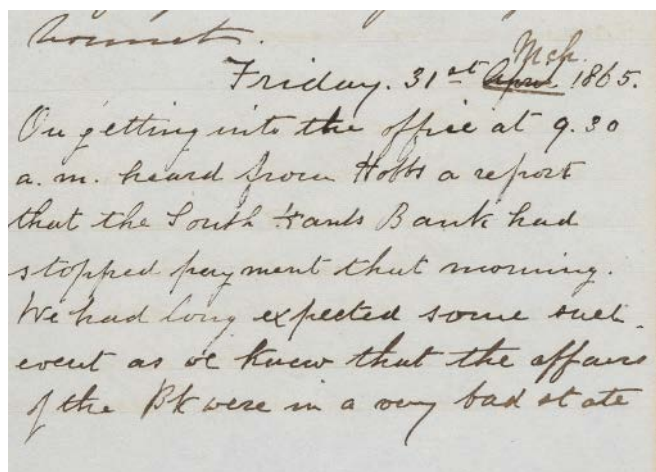 bonnet.
Friday. 31st April Mch. 1865.
On getting into the office at 9.30
a.m. heard from Hobbs a report
that the South Hants Bank had
stopped payment that morning.
We had long expected some such
event as we knew that the affairs
of the Bk were in a very bad state